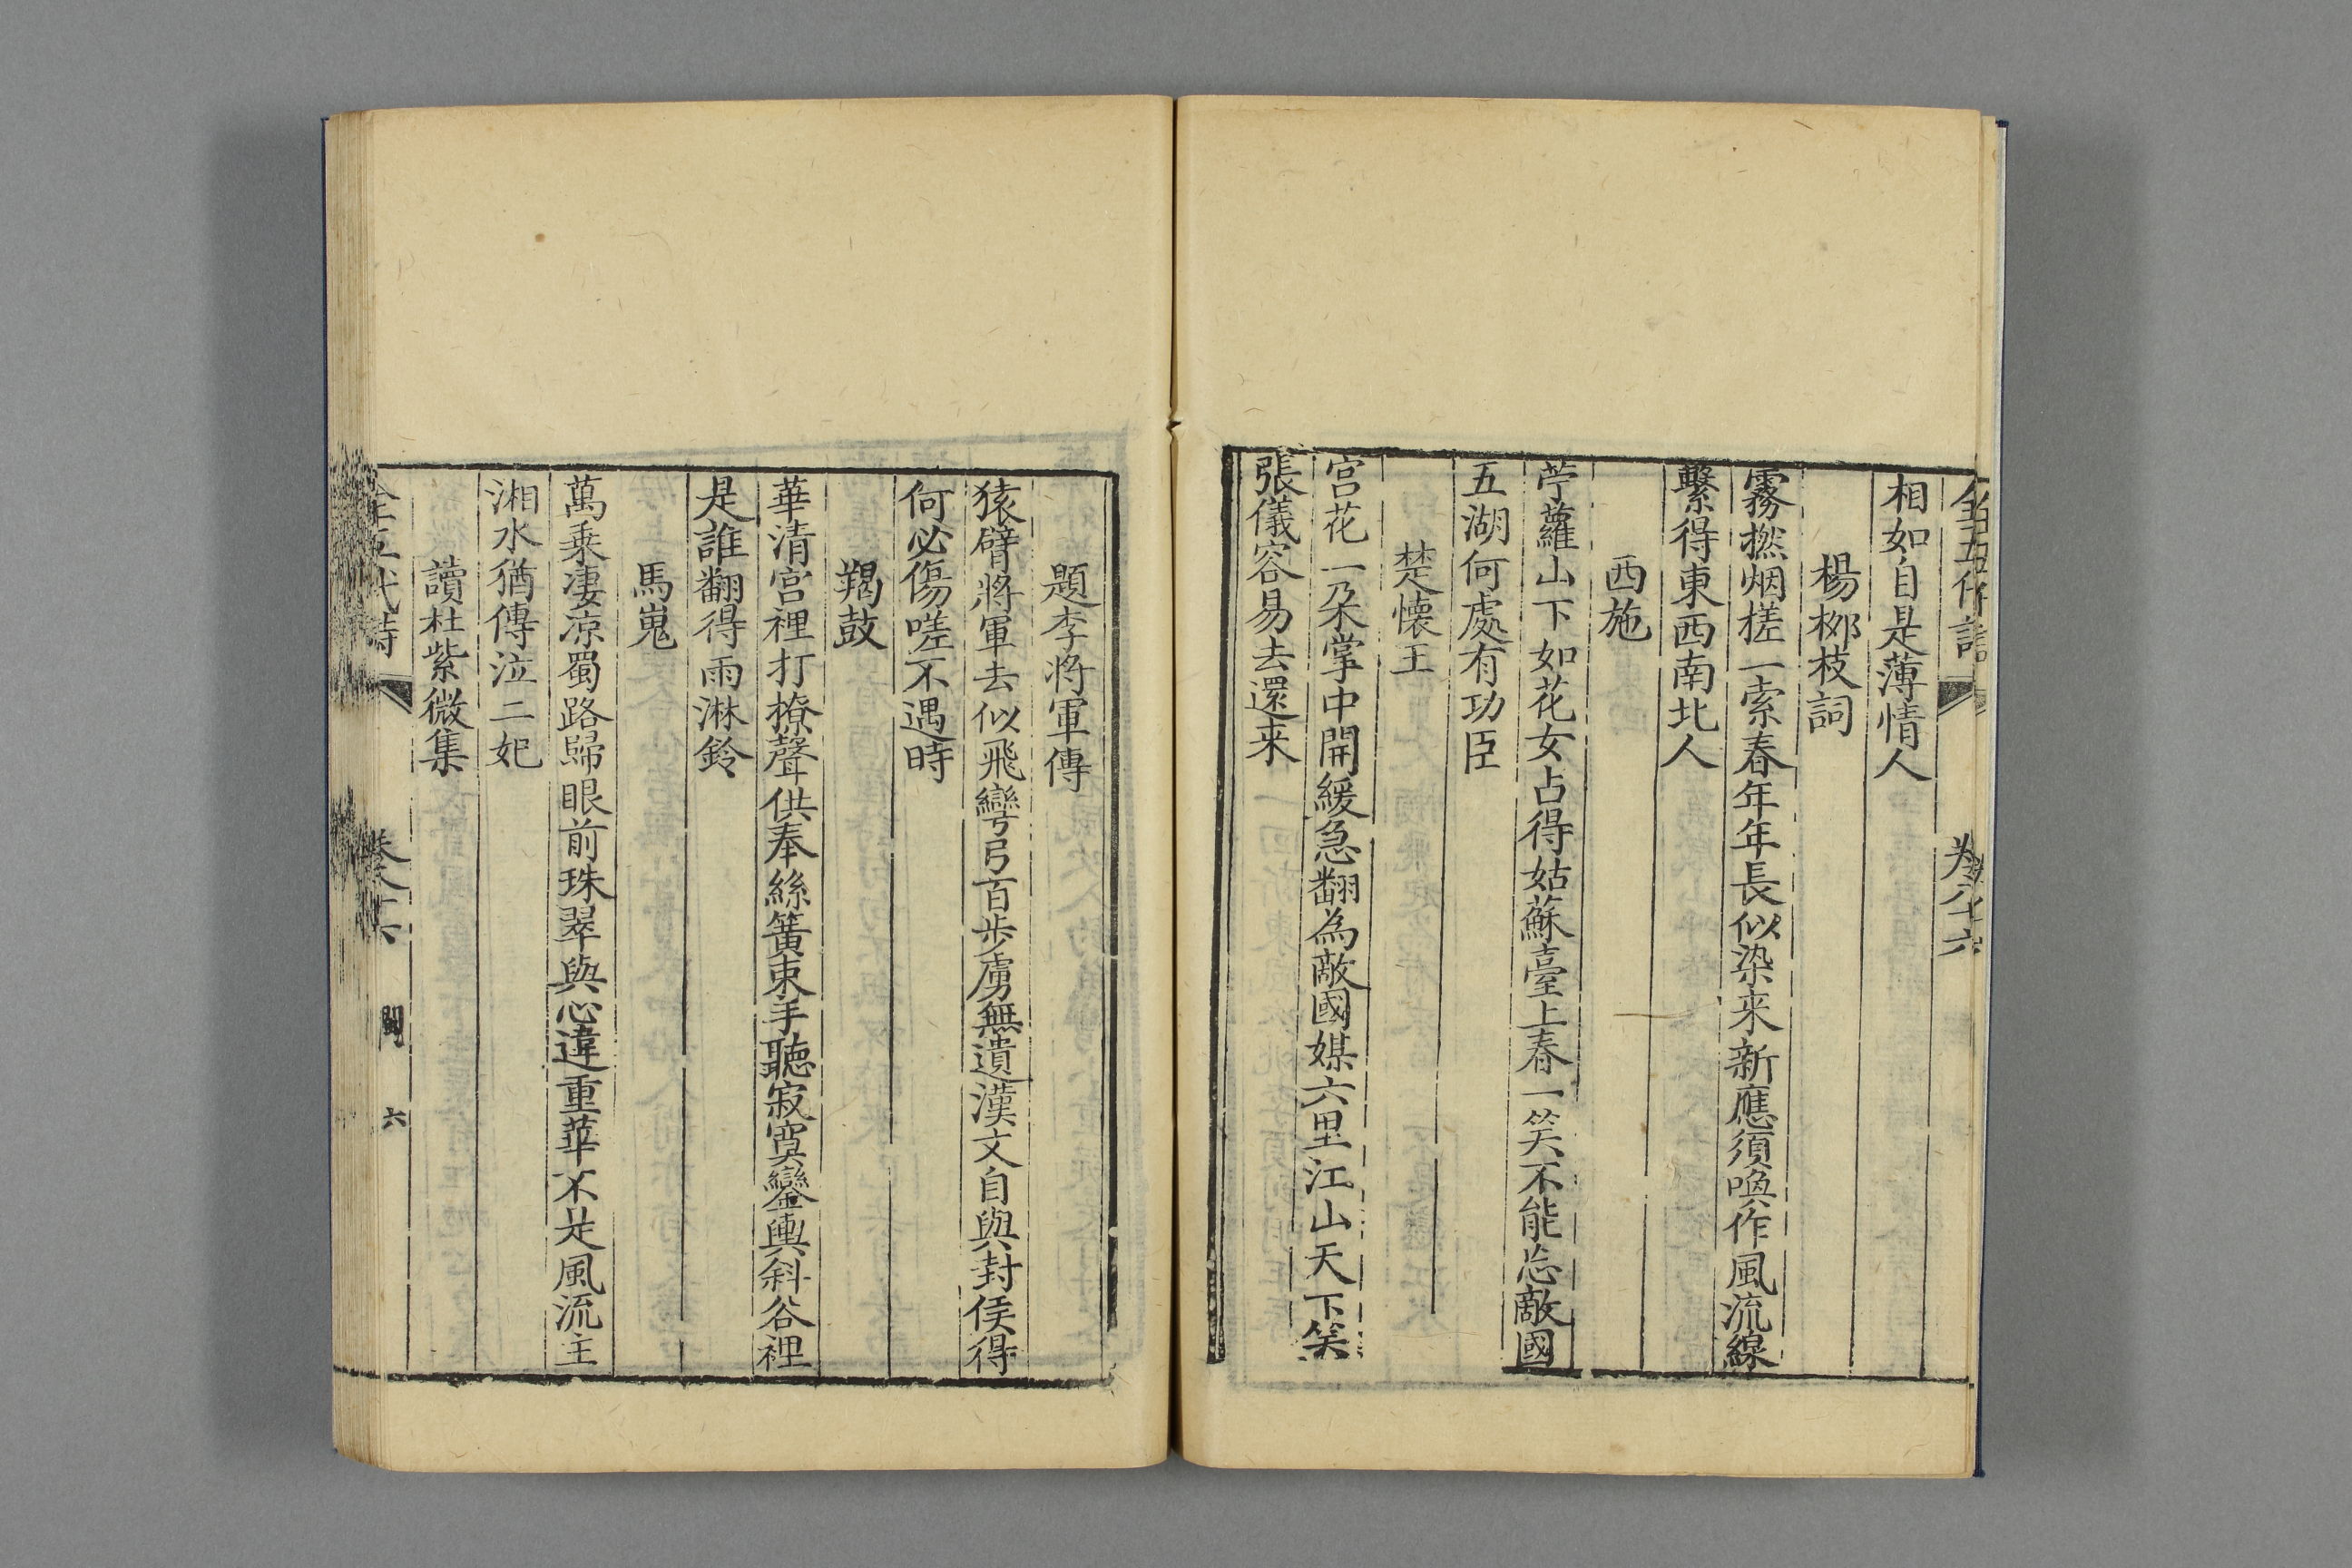 全五代詩
卷八十六
相如自是薄情人
楊柳枝詞
霧撚烟搓一索春年年長似染来新應須喚作風流線
繫得東西南北人
西施
苧蘿山下如花女占得姑蘇臺上春一笑不能忘敵國
五湖何處有功臣
楚懐王
宫花一朶掌中開緩急翻為敵國媒六里江山天下笑
張儀容易去還来
題李將軍傳
猿臂將軍去似飛彎弓百步虜無遺漢文自與封侯得
何必傷嗟不遇時
羯鼓
華清宫裡打撩聲供奉絲簧束手聽寂寞鑾輿斜谷裡
是誰翻得雨淋鈴
馬嵬
萬乗凄凉蜀路歸眼前珠翠與心違重華不是風流主
湘水猶傳泣二妃
讀杜紫微集
全五代詩
卷八十六
閩
六